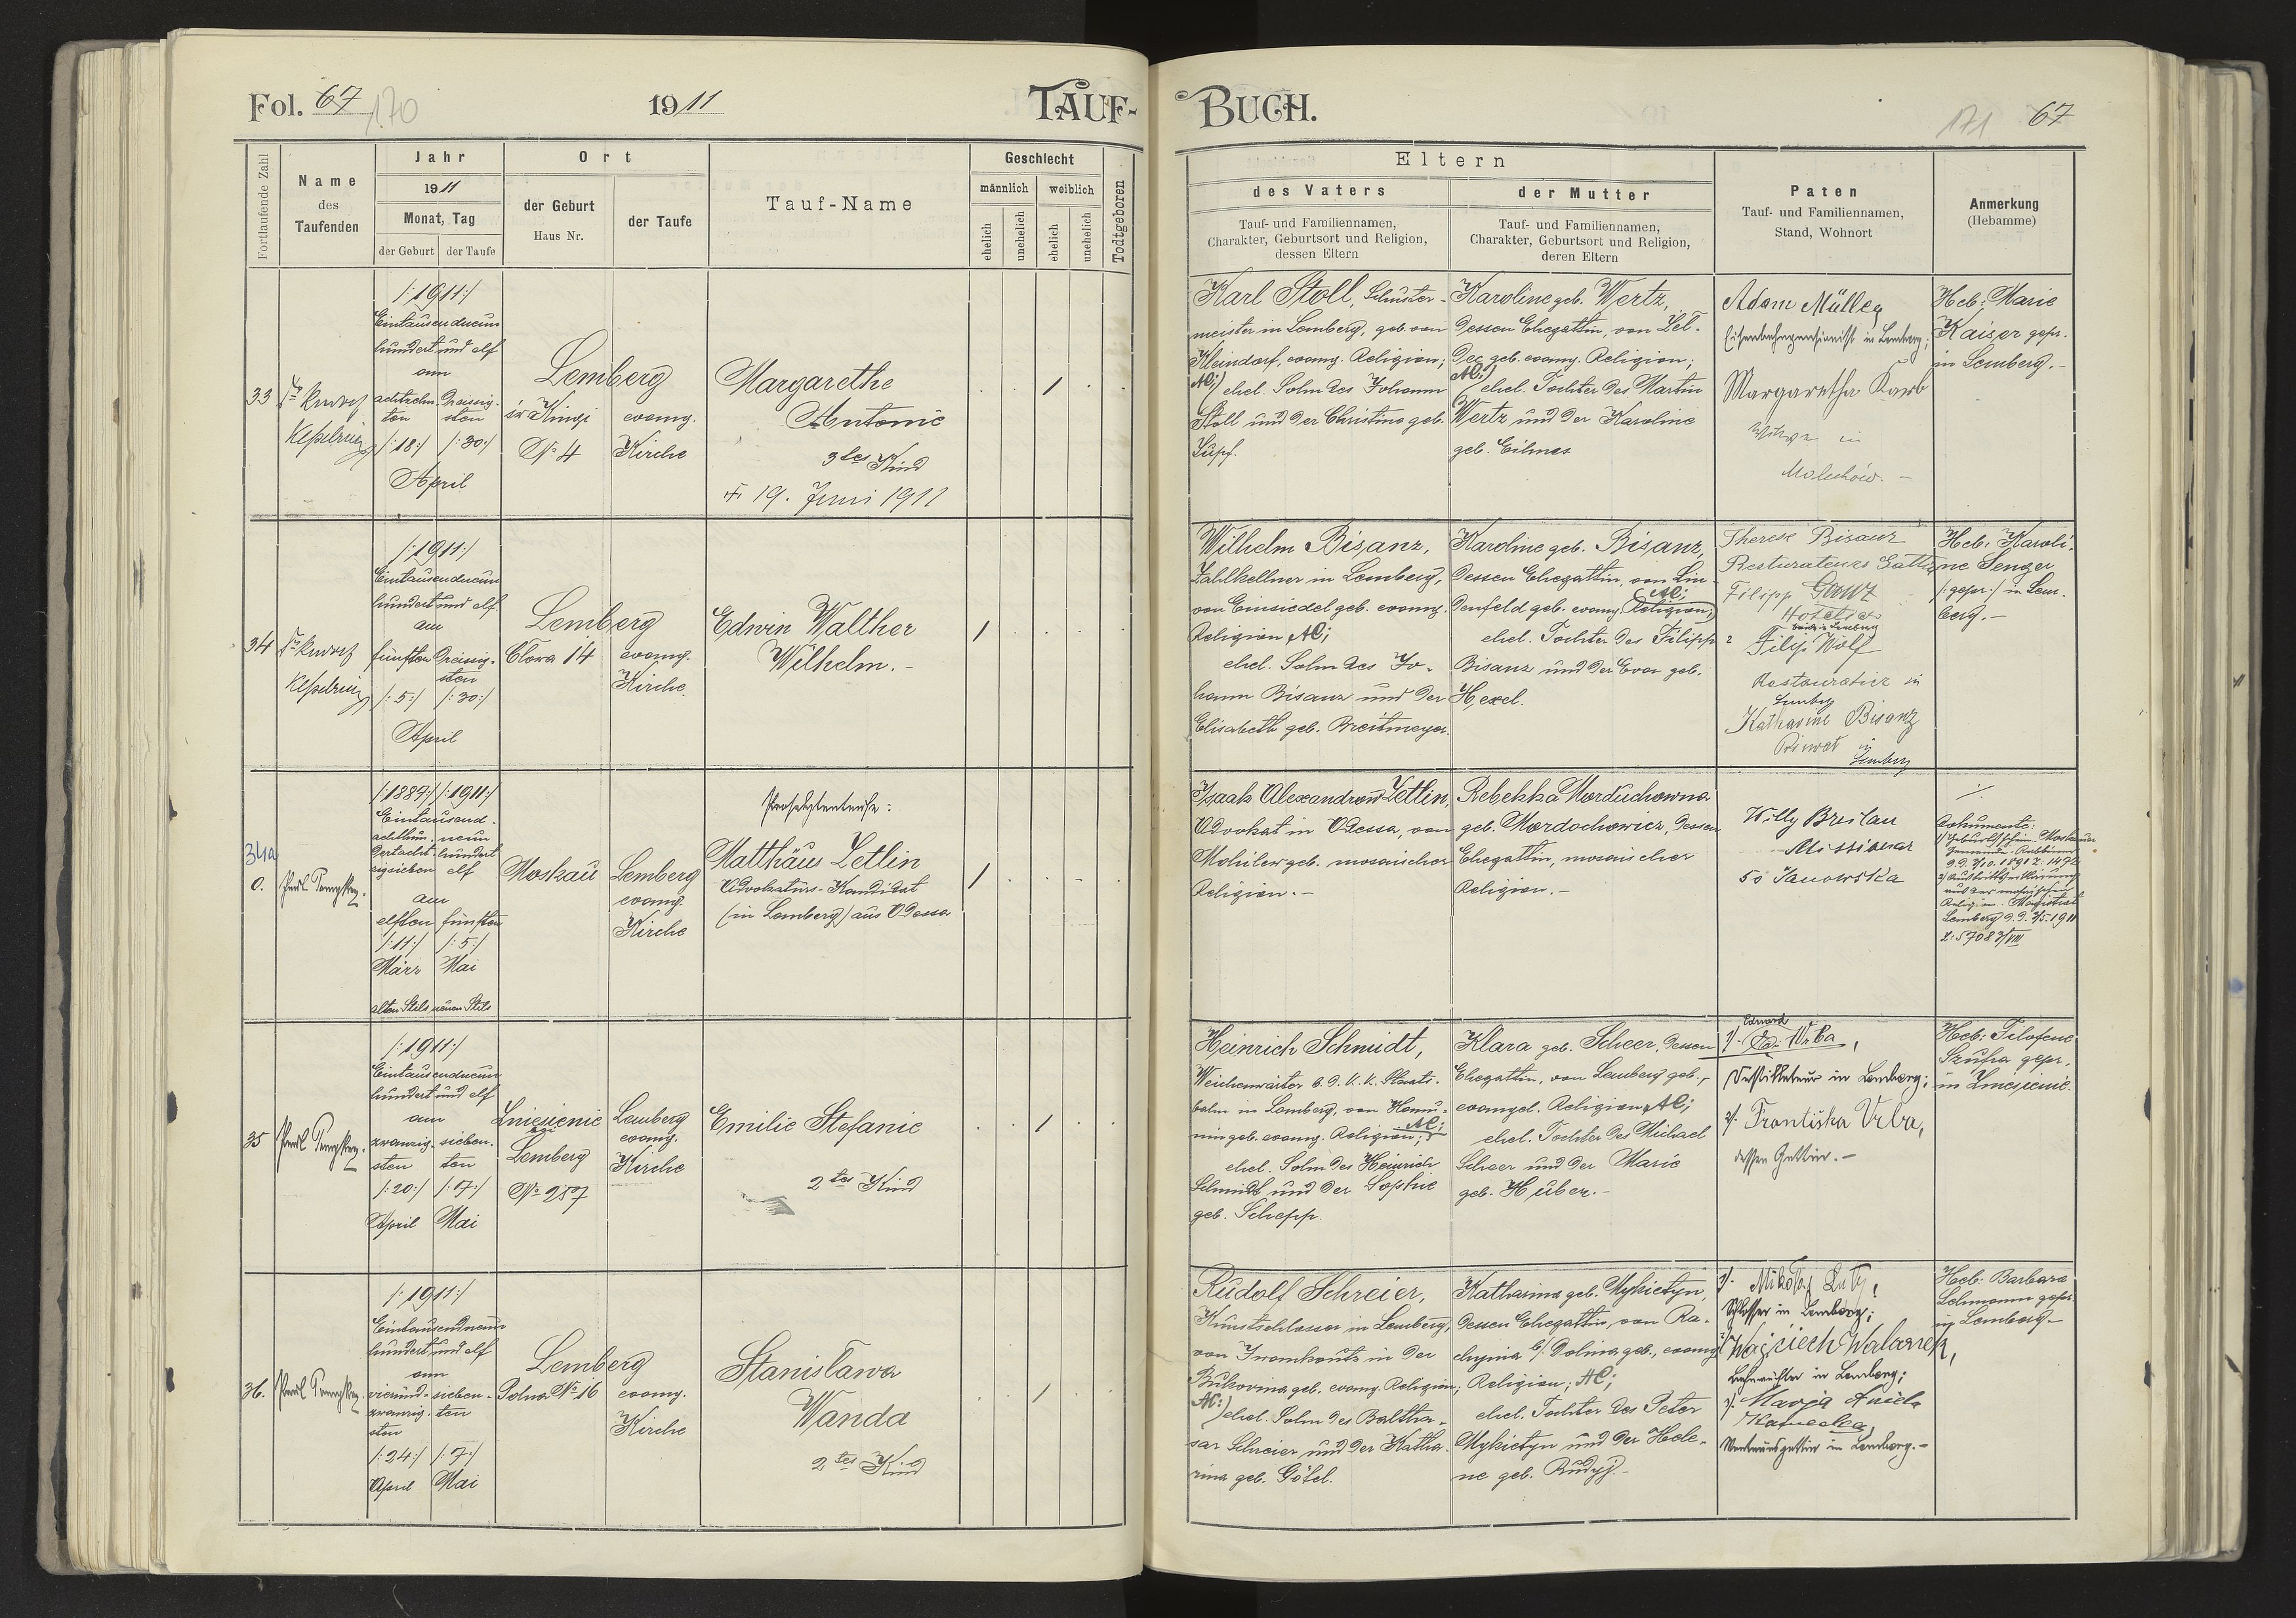 Fol. 67 170
1911
TAUF-
Fortlaufende Zahl
Name
des
Taufenden
Jahr
1911
Monat, Tag
der Geburt
der Taufe
Ort
der Geburt
Haus Nr.
der Taufe
Tauf-Name
Geschlecht
männlich
weiblich
ehelich
unehelich
ehelich
unehelich
Todtgeboren
33
Kesselring
/:1911:/
Eintausendneun
hundert und elf
am
achtzehn- Dreissig-
ten sten
/:18:/ /:30:/
April
Lemberg
św Kingi evang.
No 4 Kirche
Margarethe
Antonie
3tes Kind
19. Juni 1911
34
Kesselring
/:1911:/
Eintausendneun
hundert und elf
am
fünften Dreissig-
sten
/:5:/ /:30:/
April
Lemberg
Clowa 14 evang.
Kirche
Edwin Walther
Wilhelm.-
34a
0.
/:1889:/ /:1911:/
Eintausend-
achthun- neun
dertacht- hundert
zigsieben elf
am
elften fünften
/:11:/ /:5:/
März Mai
alten Stils neuen Stils
Moskau
Lemberg
evang.
Kirche
Proselytentaufe:
Matthäus Zetlin
Advokaturs-Kandidat
(in Lemberg) aus Odessa
35
/:1911:/
Eintausendneun
hundert und elf
am
zwanzig- sieben-
sten ten
/:20:/ /:17:/
April Mai
Zniesienie
bei
Lemberg
No 287
Lemberg
evang.
Kirche
Emilie Stefanie
2tes Kind
36.
/:1911:/
Eintausendneun
hundert und elf
am
vierund- sieben-
zwanzig- ten
sten
/:24:/ /:7:/
April Mai
Lemberg
Polna No 16 evang.
Kirche
Stanisława
Wanda
2tes Kind
BUCH.
171 67
Eltern
des Vaters
Tauf- und Familiennamen,
Charakter, Geburtsort und Religion,
dessen Eltern
der Mutter
Tauf- und Familiennamen,
Charakter, Geburtsort und Religion,
deren Eltern
Paten
Tauf- und Familiennamen,
Stand, Wohnort
Anmerkung
(Hebamme)
Karl Stoll, Schuster-
meister in Lemberg, geb. von
Kleindorf, evang. Religion;
AC;) ehel. Sohn des Johann
Stoll und der Christine geb.
Zupf.
Karoline geb. Wertz,
dessen Ehegattin, von
geb. evang. Religion;
AC;) ehel. Tochter des Martin
Wertz und der Karoline
geb. Eilmes
Adam Müller
Eisenbahnpensionist in Lemberg;
Margaretha Karb
Witwe in
Malechów.-
Heb: Marie
Kaiser gepr.
in Lemberg.-
Wilhelm Bisanz,
Zahlkellner in Lemberg,
von Einsiedel geb. evang.
Religion AC;
ehel. Sohn des Jo-
hann Bisanz und der
Elisabeth geb. Breitmeyer.
Karoline geb. Bisanz,
dessen Ehegattin, von Lin-
denfeld geb. evang. Religion; AC;
ehel. Tochter des Filipp
Bisanz und der Eva geb.
Hexel.
Therese Bisanz
Resturateurs Gattin
Filipp Ganz
Hotelier
beide in Lemberg
Filip Wolf
Restaurateur in
Lemberg
Katharine Bisanz
Privat in
Lemberg
Heb: Karoli-
ne Senger
/:gepr:/ in Lem-
berg.-
Isaak Alexandrow Zetlin,
Advokat in Odessa, von
Mohilew geb. mosaischer
Religion.-
Rebekka Morduchowna
geb. Mordochowicz, dessen
Ehegattin, mosaischer
Religion.-
Willy Breslau
Missionar
50 Janowska
Dokumente:
1) Geburtsschein. Moskauer
Gemeinde-Rabbiner
2) Austrittserklärung
aus der mosaischen
Religion. Magistrat
Lemberg
Heinrich Schmidt,
Weichenwärter b. d. k. k. Staats-
bahn in Lemberg, von
geb. evang. Religion; AC;
ehel. Sohn des Heinrich
Schmidt und der Sophie
geb. Schepp.
Klara geb. Scheer, dessen
Ehegattin, von Lemberg geb.,
evangel. Religion AC;
ehel. Tochter des Michael
Scheer und der Marie
geb. Huber.-
1/. Eduard Vrba,
Destillateur in Lemberg;
2/. Frantiska Vrba,
dessen Gattin.-
Heb: Filofene
Szufra gepr.
in Zniesienie.
Rudolf Schreier,
Kunstschlosser in Lemberg,
von in der
Bukovina geb. evang. Religion;
AC;) ehel. Sohn des Baltha-
sar Schreier und der Katha-
rina geb. Göbel.
Katharina geb. Mykietyn,
dessen Ehegattin, von Ra-
chynia b/ Dolina geb., evang.
Religion; AC;
ehel. Tochter des Peter
Mykietyn und der Hele-
ne geb. Rudyj.-
Schlosser in Lemberg;
2/ Wojciech Walaszek,
in Lemberg;
3/. Marya Aniela
in Lemberg.-
Heb: Barbara
Lehmann gepr.
in Lemberg-